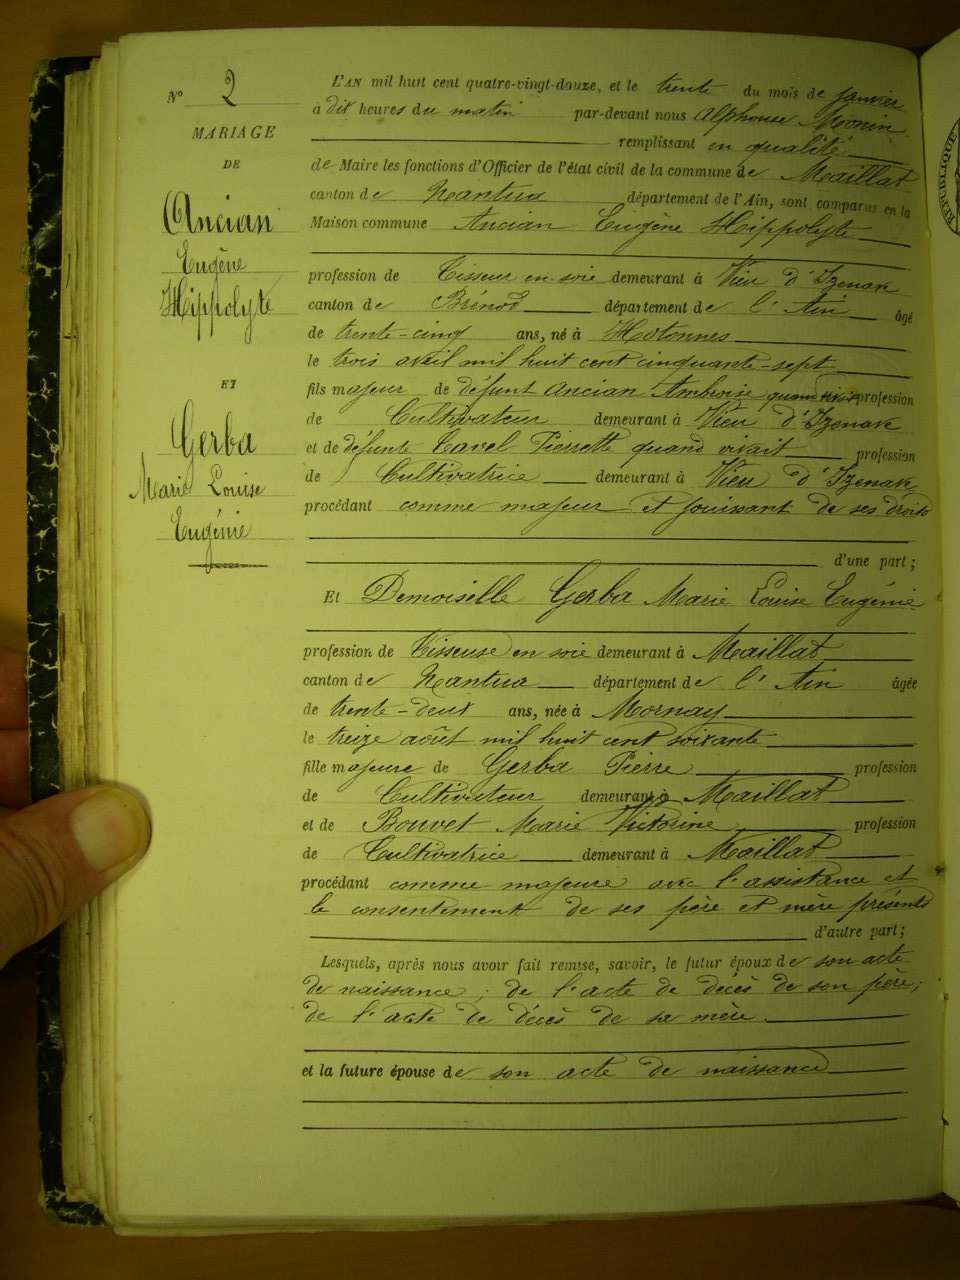 N° 2
MARIAGE
DE
Ancian
Eugène
Hippolyte
ET
Gerba
Marie Louise
Eugénie
L'AN mil huit cent quatre-vingt-douze, et le trente du mois de janvier
à dix heures du matin par-devant nous Alphonse Monin
remplissant en qualité
de Maire les fonctions d'Officier de l'état civil de la commune de Maillat
canton de Nantua département de l'Ain, sont comparus en la
Maison commune Ancian Eugène Hippolyte
profession de Tisseur en soie demeurant à Vieu d'Izenave
canton de Brénod département de l'Ain âgé
de trente-cinq ans, né à Hotonnes
le trois avril mil huit cent cinquante-sept
fils majeur de défunt Ancian Ambroise quand vivait profession
de Cultivateur demeurant à Vieu d'Izenave
et de défunte Cavel Pierrette quand vivait profession
de Cultivatrice demeurant à Vieu d'Izenave
procédant comme majeur et jouissant de ses droits
d'une part ;
Et Demoiselle Gerba Marie Louise Eugénie
profession de Tisseuse en soie demeurant à Maillat
canton de Nantua département de l'Ain âgée
de trente-deux ans, née à Mornay
le treize août mil huit cent soixante
fille majeure de Gerba Pierre profession
de Cultivateur demeurant à Maillat
et de Bouvet Marie Victorine profession
de Cultivatrice demeurant à Maillat
procédant comme majeure avec l'assistance et
le consentement de ses père et mère présents
d'autre part ;
Lesquels, après nous avoir fait remise, savoir, le futur époux de son acte
de naissance ; de l'acte de décès de son père ;
de l'acte de décès de sa mère.
et la future épouse de son acte de naissance
RÉPUBLIQUE